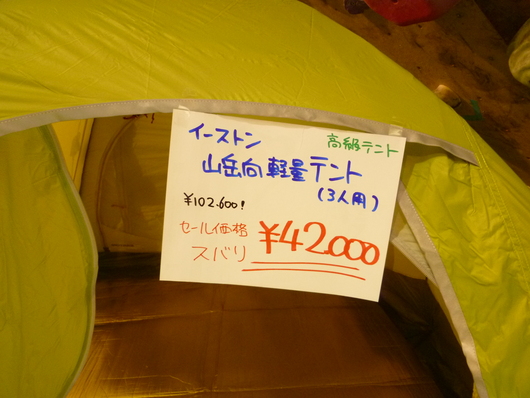 イーストン
高級テント
山岳向軽量テント
(3人用)
¥102.600!
セール価格
ズバリ ¥42.000